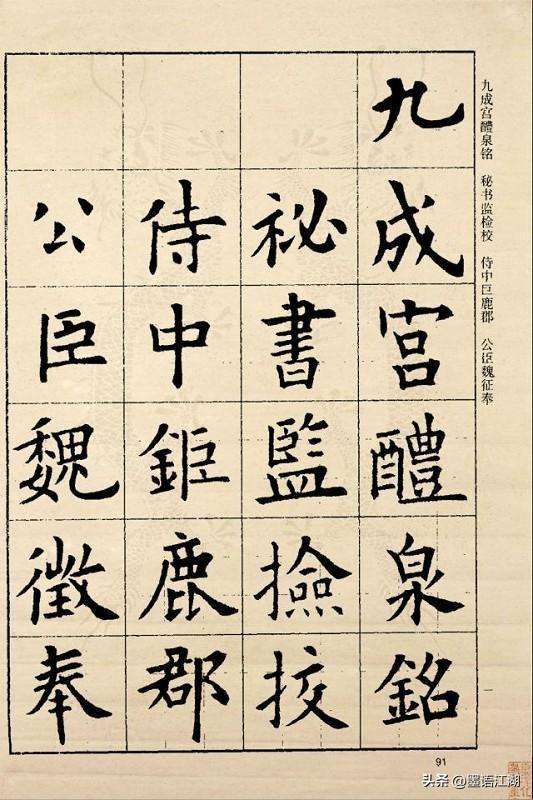 九成宮醴泉銘
祕書監撿挍
侍中鉅鹿郡
公臣魏徵奉
九成宫醴泉铭 秘书监检校 侍中巨鹿郡 公臣魏征奉
91
头条 @墨语江湖